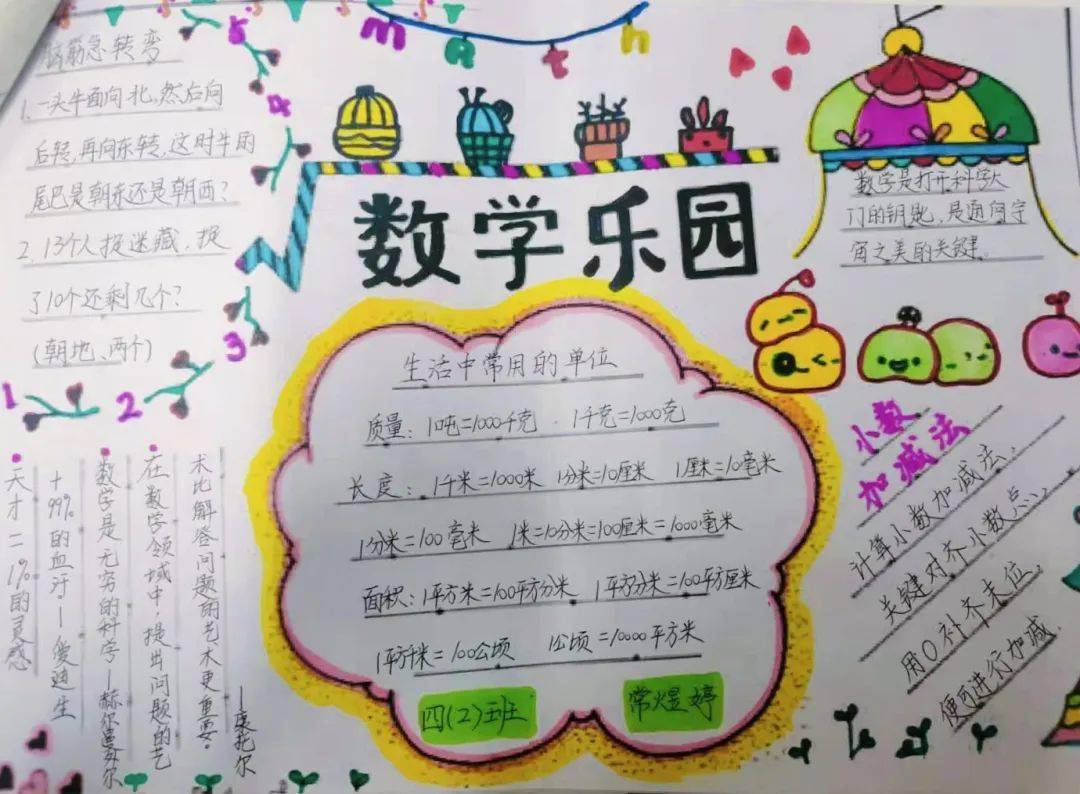 math
数学乐园
脑筋急转弯
1. 一头牛面向北,然后向
后转,再向东转,这时牛的
尾巴是朝东还是朝西?
2. 13个人捉迷藏,捉
了10个还剩几个?
(朝地、两个)
1
2
3
4
5
数学是打开科学大
门的钥匙,是通向宇
宙之美的关键。
生活中常用的单位
质量: 1吨=1000千克. 1千克=1000克
长度: 1千米=1000米 1分米=10厘米 1厘米=10毫米
1分米=100毫米 1米=10分米=100厘米=1000毫米
面积: 1平方米=100平方分米 1平方分米=100平方厘米
1平方千米=100公顷 1公顷=10000平方米
四(2)班
常煜婷
小数
加减法
计算小数加减法,
关键对齐小数点,
用0补齐末位,
便可进行加减.
天才=1%的灵感
+99%的血汗—爱迪生
数学是无穷的科学—赫尔曼外尔
在数学领域中,提出问题的艺
术比解答问题的艺术更重要。
——康托尔